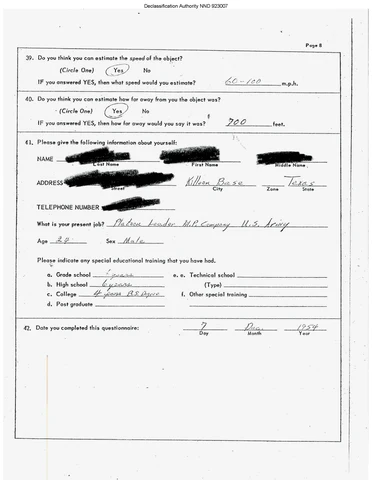 Declassification Authority NND 923007
Page 8
39. Do you think you can estimate the speed of the object?
(Circle One) Yes No
IF you answered YES, then what speed would you estimate? 60-100 m.p.h.
40. Do you think you can estimate how far away from you the object was?
(Circle One) Yes No
IF you answered YES, then how far away would you say it was? 700 feet.
41. Please give the following information about yourself:
NAME
Last Name First Name Middle Name
ADDRESS Killeen Base Texas
Street City Zone State
TELEPHONE NUMBER
What is your present job? Platoon Leader M.P. Company U.S. Army
Age Sex Male
Please indicate any special educational training that you have had.
a. Grade school years e. e. Technical school
b. High school years (Type)
c. College 4 years B.S. f. Other special training
d. Post graduate
42. Date you completed this questionnaire: 7 Dec. 1954
Day Month Year